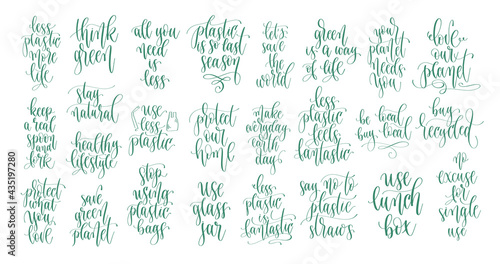 less
plastic
more
life
think
green
all you
need
is
less
plastic
is so last
season
let's
save
the
world
green
is a way
of life
you
planet
needs
you
love
our
planet
keep
a real
spoon
and
fork
stay
natural
healthy
lifestyle
use
less
plastic
protect
our
home
make
everyday
earth
day
less
plastic
feels
fantastic
be local
buy local
buy
recycled
protect
what
you
love
save
green
planet
stop
using
plastic
bags
use
glass
jar
less
plastic
is
fantastic
say no to
plastic
straws
use
lunch
box
no
excuse
for
single
use
435197280